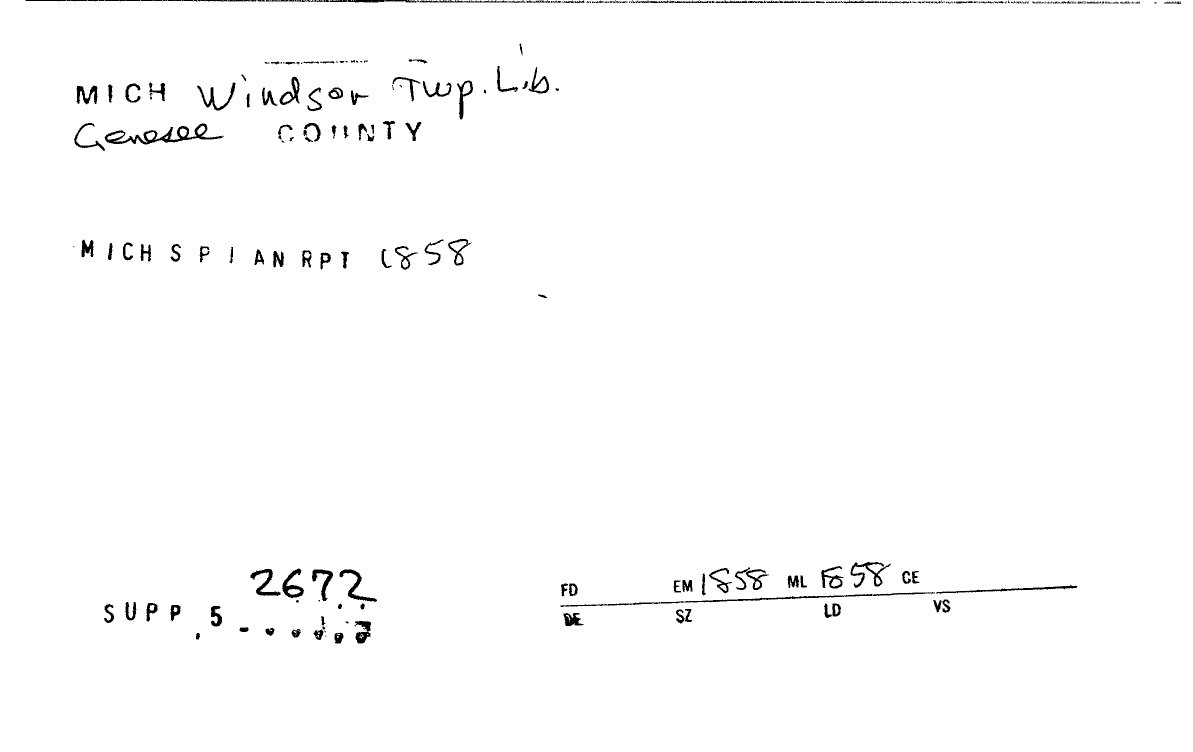 MICH Windsor Twp. Lib.
Genesee COUNTY
MICH S P I AN RPT 1858
2672
SUPP. 5
FD EM 1858 ML 1858 CE
DE SZ LD VS